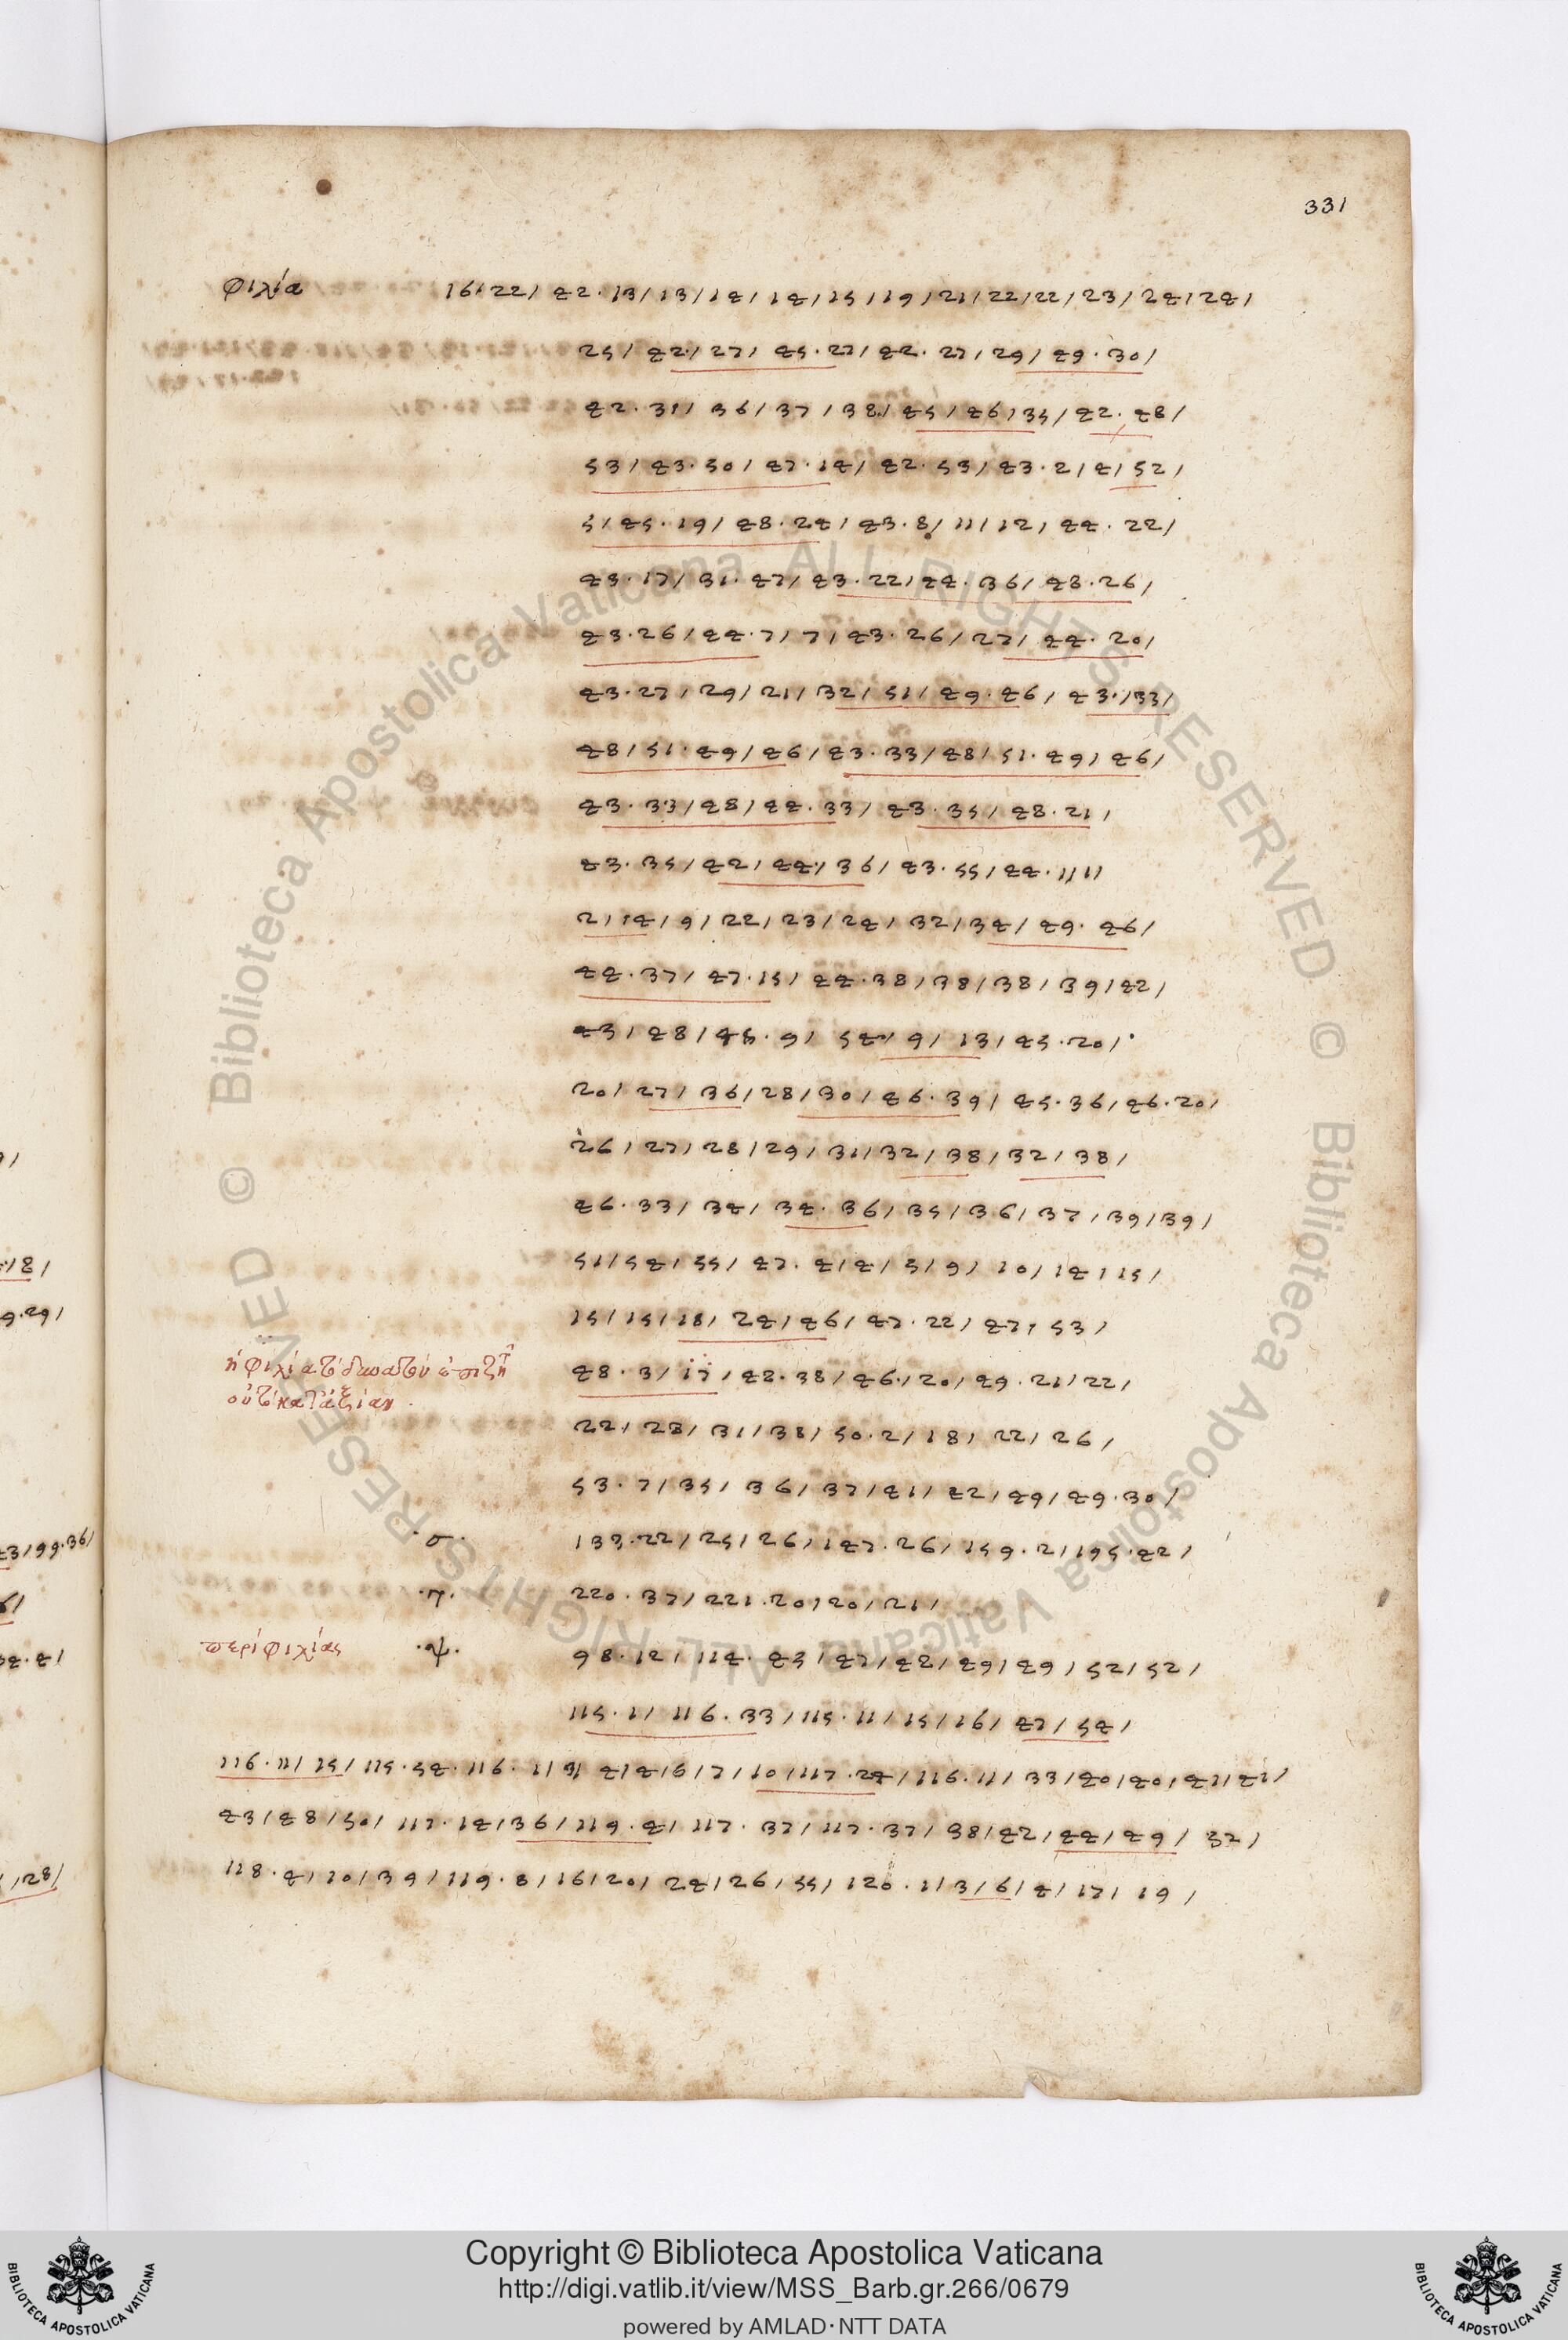 331
φιλία 16·22/ 42·13/13/14/14/15/19/21/22/22/23/24/24/
25/ 42/ 27/ 45·27/ 42·27/29/ 49·30/
42·31/ 36/37/38/45/46/35/42·48/
53/43·50/47·14/42·53/43·2/4/52/
5/45·19/48·24/43·8/11/12/44·22/
43·17/31·47/43·22/44·36/48·26/
43·26/44·7/7/43·26/27/44·20/
43·27/29/21/32/51/49·46/43·/33/
48/51·49/46/43·33/48/51·49/46/
43·33/48/44·33/43·35/48·21/
43·35/42/44·/36/43·55/44·1/11
2/14/9/22/23/24/32/34/49·46/
44·37/47·15/44·38/38/38/39/42/
43/48/45·9/54·/9/13/45·20/
20/27/36/28/30/46·39/45·36/46·20/
26/27/28/29/31/32/38/32/38/
46·33/34/34·36/35/36/37/39/39/
51/54/55/47·4/4/5/9/10/14/15/
15/15/18/24/46/47·22/47/53/
48·3/17/48·38/46·/20/49·21/22/
22/28/31/38/50·2/18/22/26/
53·7/35/36/37/41/42/49/49·30/
·σ· 133·22/25/26/147·26/159·2/195·42/
220·37/221·20/20/21/
περὶ φιλίας ·ψ· 98·12/114·45/47/42/49/49/52/52/
115·1/116·33/115·11/15/16/47/54/
116·11/15/115·54·116·1/3/4/4/6/7/10/117·24/116·11/33/40/40/41/41/
43/48/50/117·14/36/119·4/117·37/117·37/38/42/44/49/32/
118·4/10/39/119·8/16/20/24/26/55/120·1/3/6/4/17/19/
Copyright © Biblioteca Apostolica Vaticana
http://digi.vatlib.it/view/MSS_Barb.gr.266/0679
powered by AMLAD·NTT DATA